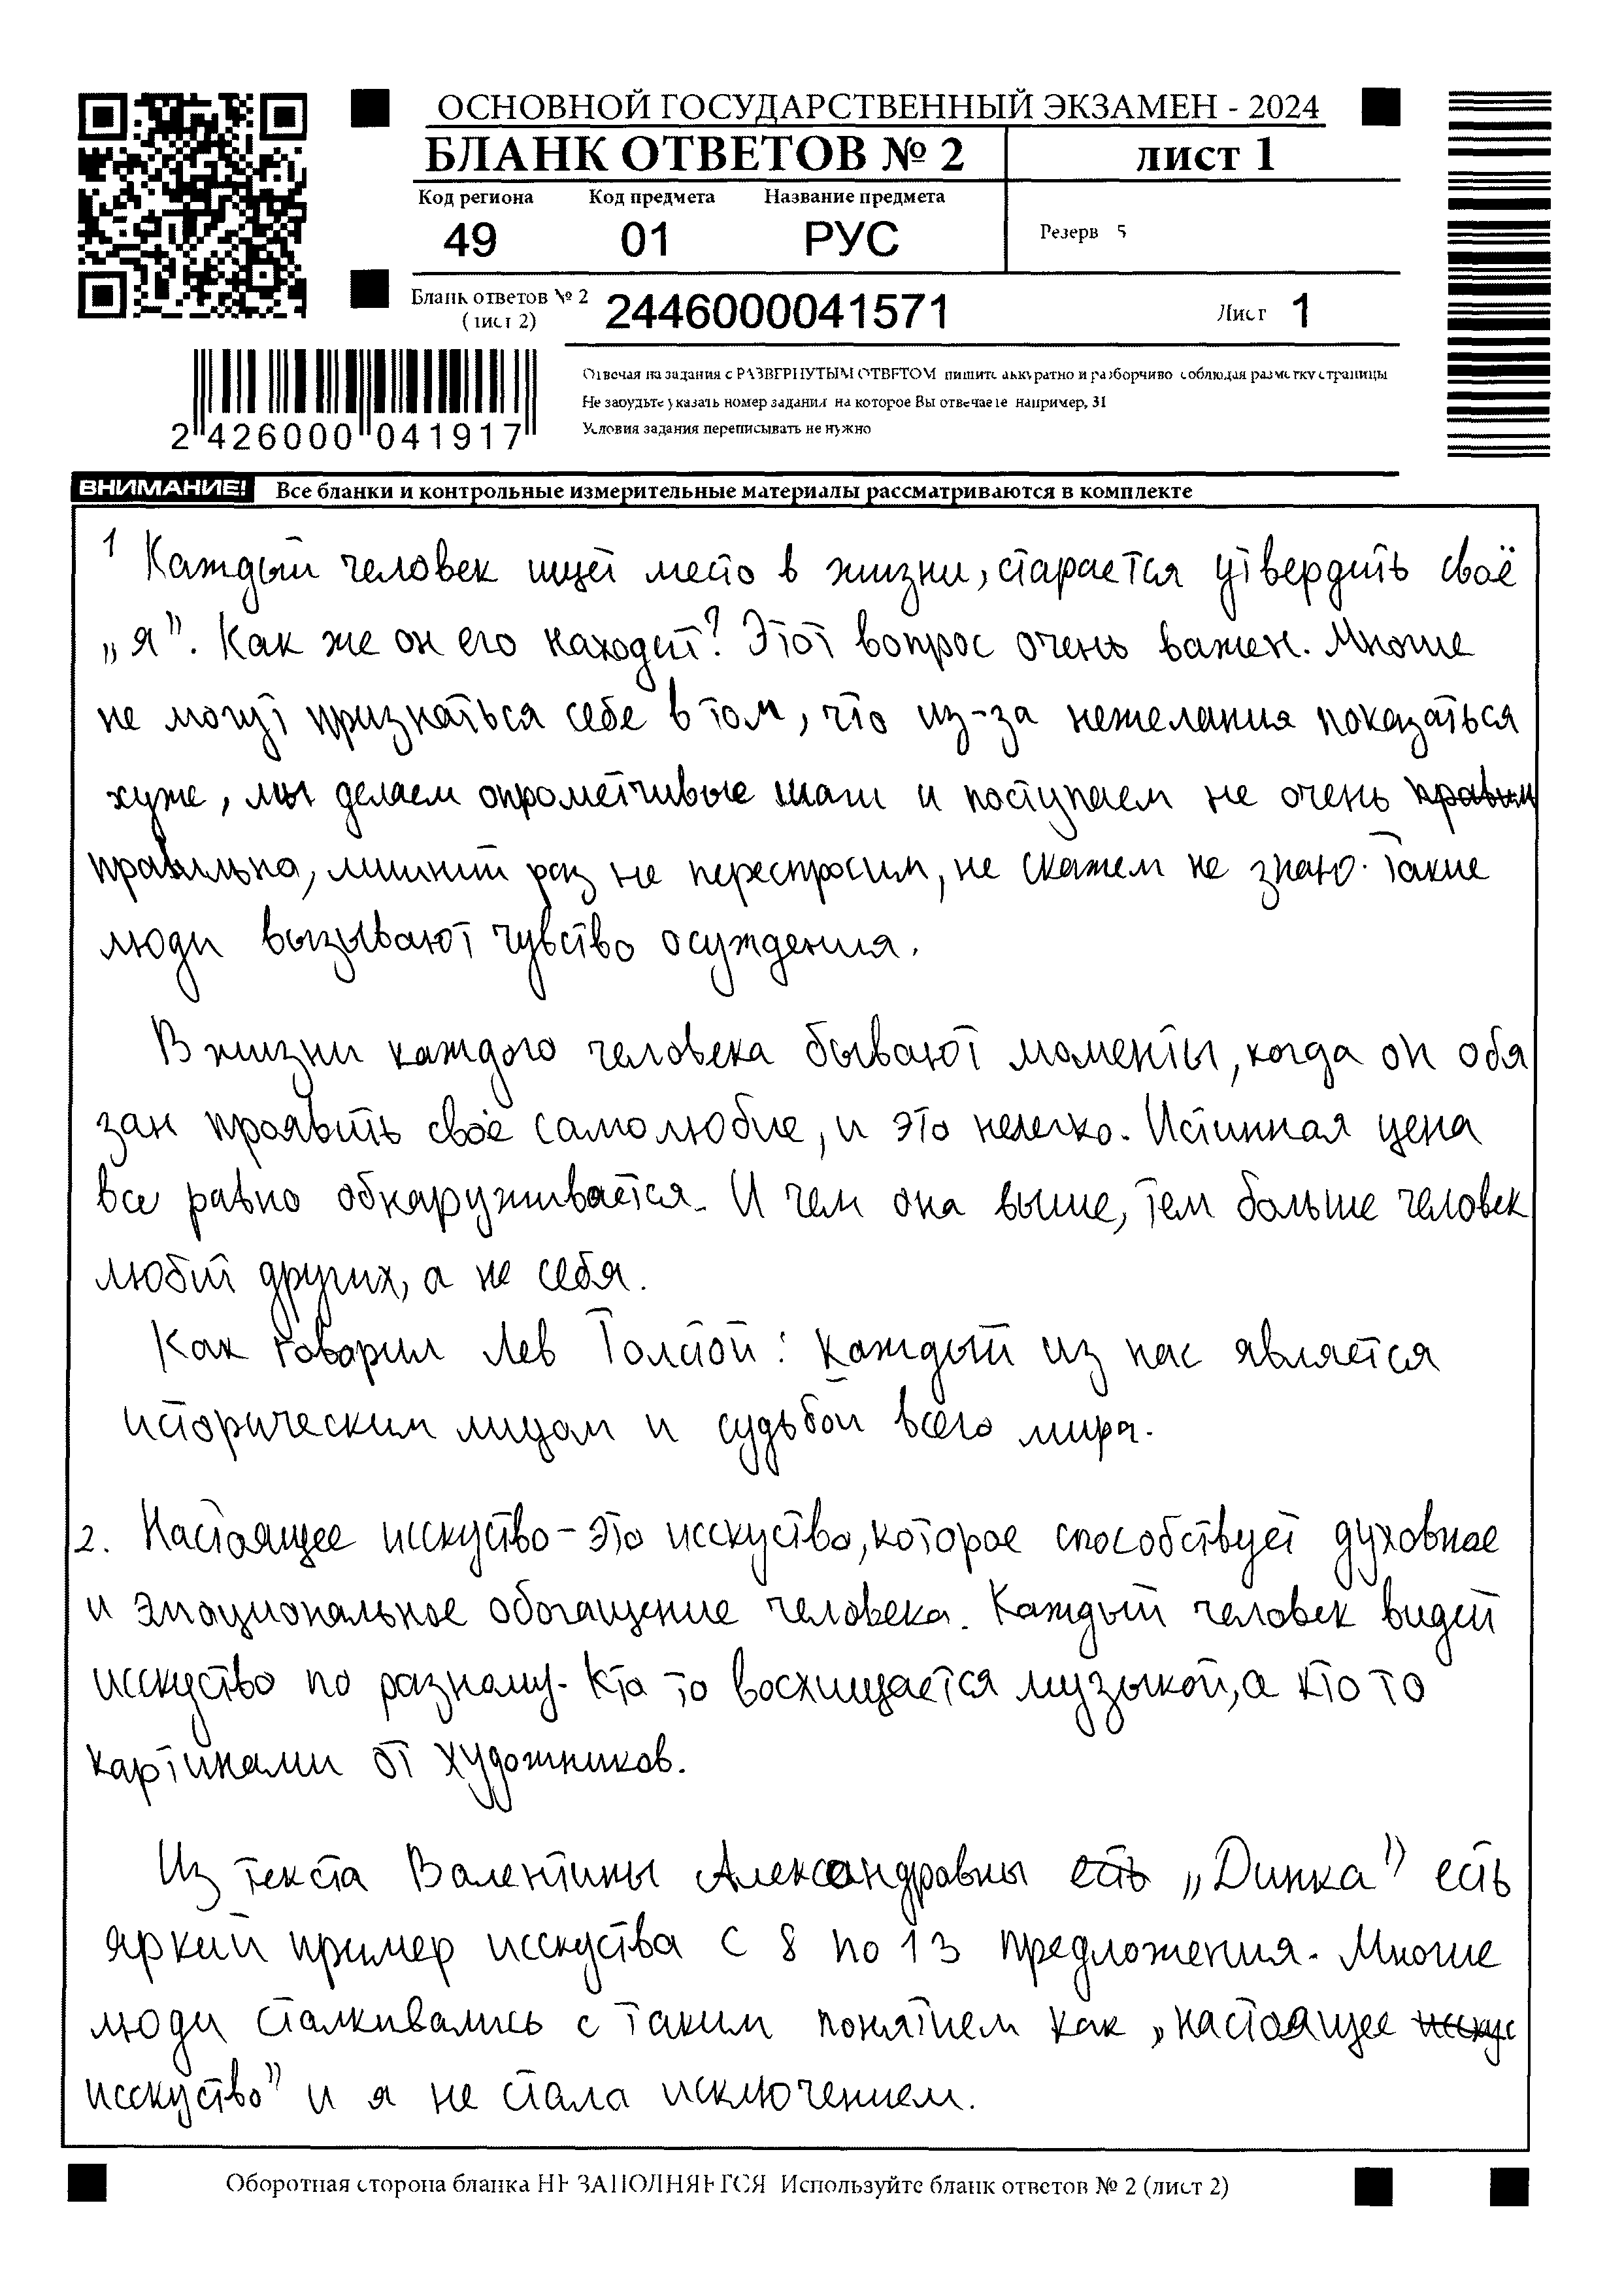 ОСНОВНОЙ ГОСУДАРСТВЕННЫЙ ЭКЗАМЕН - 2024
БЛАНК ОТВЕТОВ № 2
лист 1
Код региона Код предмета Название предмета
49 01 РУС
Резерв 5
Бланк ответов № 2
(лист 2)
2446000041571
Лист 1
Отвечая на задания с РАЗВЕРНУТЫМ ОТВЕТОМ пишите аккуратно и разборчиво соблюдая разметку страницы
Не забудьте указать номер задания на которое Вы отвечаете например, 31
Условия задания переписывать не нужно
2 426000 041917
ВНИМАНИЕ! Все бланки и контрольные измерительные материалы рассматриваются в комплекте
1 Каждый человек ищет место в жизни, старается утвердить своё
„я”. Как же он его находит? Этот вопрос очень важен. Многие
не могут признаться себе в том, что из-за нежелания показаться
хуже, мы делаем опрометчивые шаги и поступаем не очень правил
правильно, лишний раз не переспросим, не скажем не знаю. Такие
люди вызывают чувство осуждения.
В жизни каждого человека бывают моменты, когда он обя
зан проявить своё самолюбие, и это нелегко. Истинная цена
все равно обнаруживается. И чем она выше, тем больше человек
любит других, а не себя.
Как говорил Лев Толстой: каждый из нас является
историческим лицом и судьбой всего мира.
2. Настоящее исскуство - это исскуство, которое способствует духовное
и эмоциональное обогащение человека. Каждый человек видет
исскуство по разному. Кто то восхищается музыкой, а кто то
картинами от художников.
Из текста Валентины Александровны есть „Динка” есть
яркий пример исскуства с 8 по 13 предложения. Многие
люди сталкивались с таким понятием как „настоящее исскус
исскуство” и я не стала исключением.
Оборотная сторона бланка НЕ ЗАПОЛНЯЕТСЯ Используйте бланк ответов № 2 (лист 2)